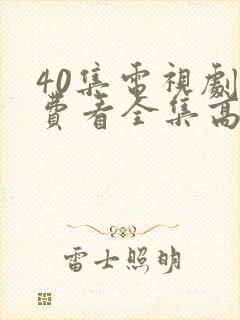 40集電視劇
費看全集高
雷士照明